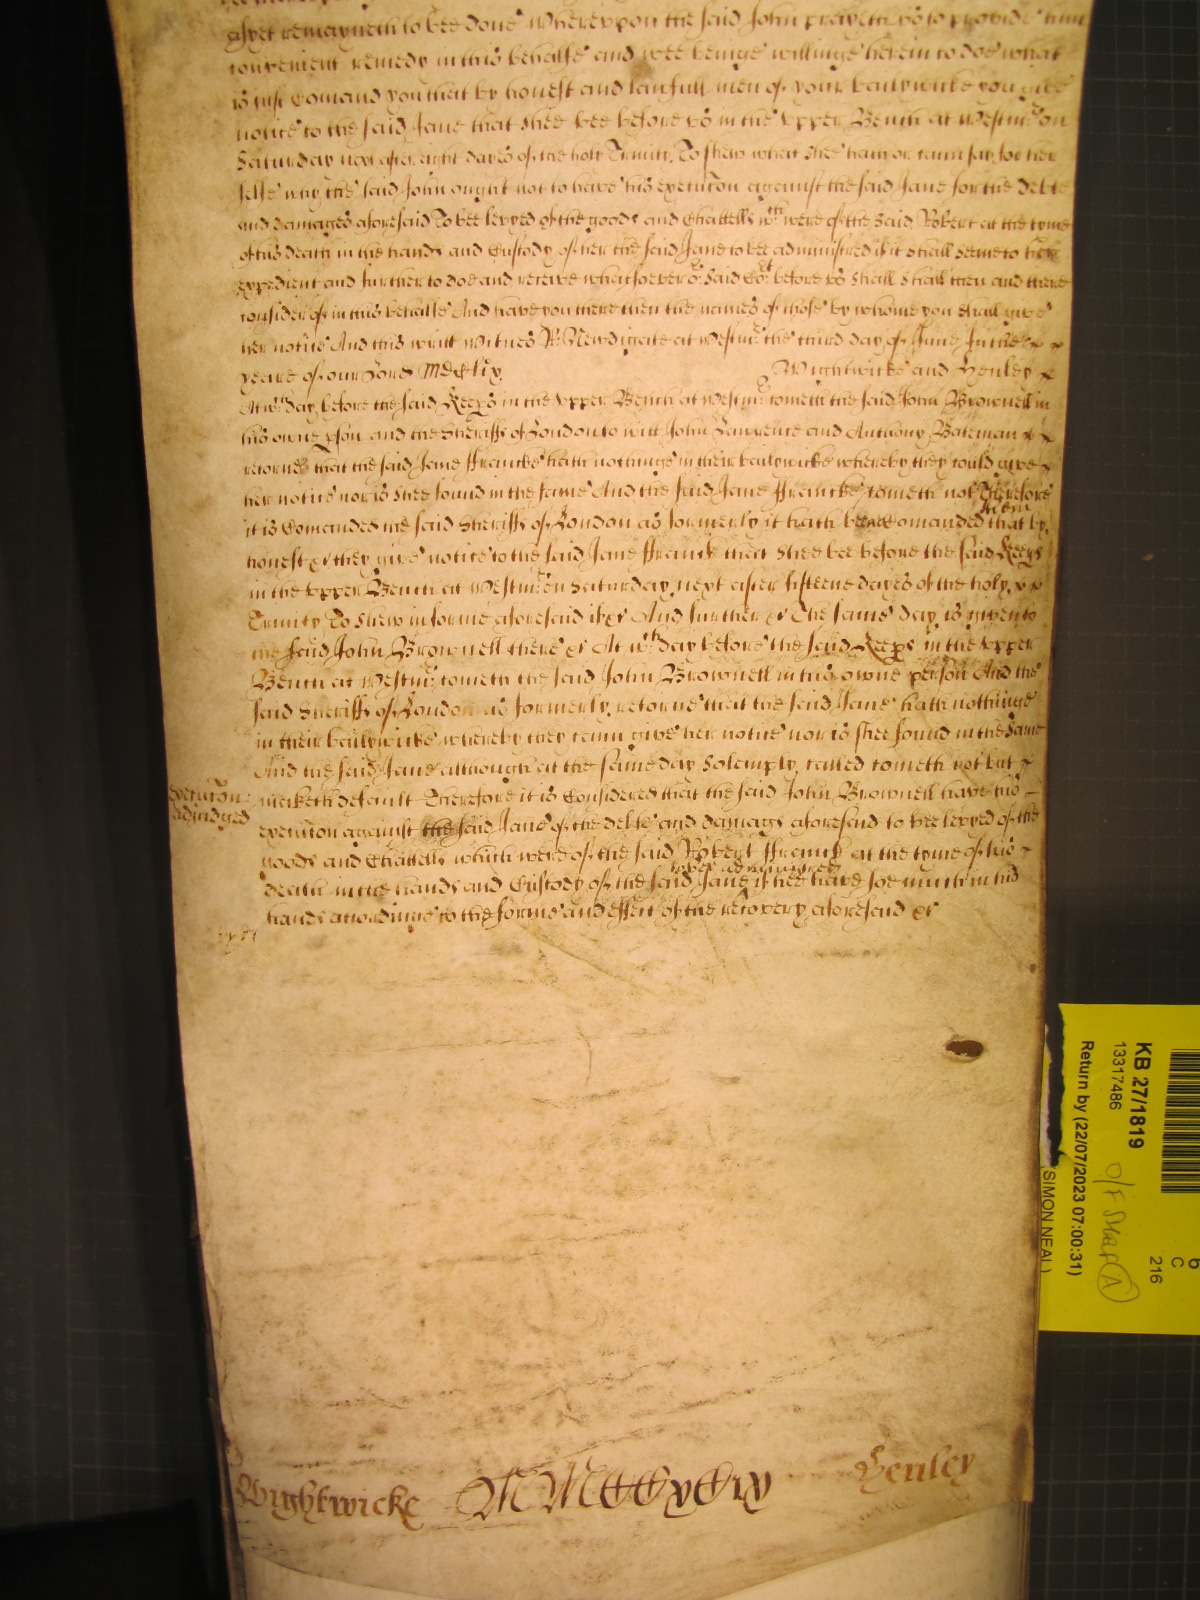 as yet remayneth to bee done Wherevpon the said John prayeth vs to provide him
convenient remedy in this behalfe and wee beinge willinge herein to doe what
is just Comand you that by honest and lawfull men of your bailywicke you give
notice to the said Jane that shee bee before vs in the vpper Bench at Westmr on
Saturday next after eight dayes of the holy Trinity To shew what shee hath or cann say for her
selfe why the said John ought not to have his execucon against the said Jane for the debte
and damages aforesaid To bee levyed of the goods and Chattells wch were of the said Robert at the tyme
of his death in the hands and Custody of her the said Jane to bee administred if it shall seeme to her
expedient and further to doe and receive whatsoever or said Cot before vs shall then and there
consider of in this behalfe And have you there then the names of those by whome you shall give
her notice And this writt Witnes R Newdigate at Westmr the third day of June In the
yeare of our Lord MDCLIX Wightwicke and Henley
At wch day before the said Keeps in the vpper Bench at Westmr cometh the said John Brownell in
his owne pson and the Sheriffs of London to witt John Lawrence and Anthony Bateman
retorne that the said Jane Francke hath nothinge in their bailywicke whereby they could give
her notice nor is shee found in the same And the said Jane Francke cometh not Therefore
it is Comanded the said Sheriffs of London as formerly it hath beene Comanded them that by
honest &c they give notice to the said Jane Franck that shee bee before the said Keeps
in the vpper Bench at Westmr on Saturday next after fifteene dayes of the holy
Trinity To shew in forme aforesaid if &c And further &c The same day is given to
the said John Brownell there &c At wch day before the said Keeps in the vpper
Bench at Westmr cometh the said John Brownell in his owne person And the
said Sheriffs of London as formerly retorne that the said Jane hath nothinge
in their bailywicke whereby they cann give her notice nor is shee found in the same
And the said Jane although at the same day Solemply called cometh not but
Execucon adiudged
maketh default Therefore it is Considered that the said John Brownell have his
execucon against the said Jane of the debte and damags aforesaid to bee levyed of the
goods and Chattells which were of the said Robert Franck at the tyme of his
death in the hands and Custody of the said Jane to bee administred if shee have soe much in his
hands accordinge to the forme and effect of the recovery aforesaid &c
Wightwicke MMCCCxCix Henley
KB 27/1819
13317486
Return by (22/07/2023 07:00:31)
(SIMON NEAL)
216
6
C
A